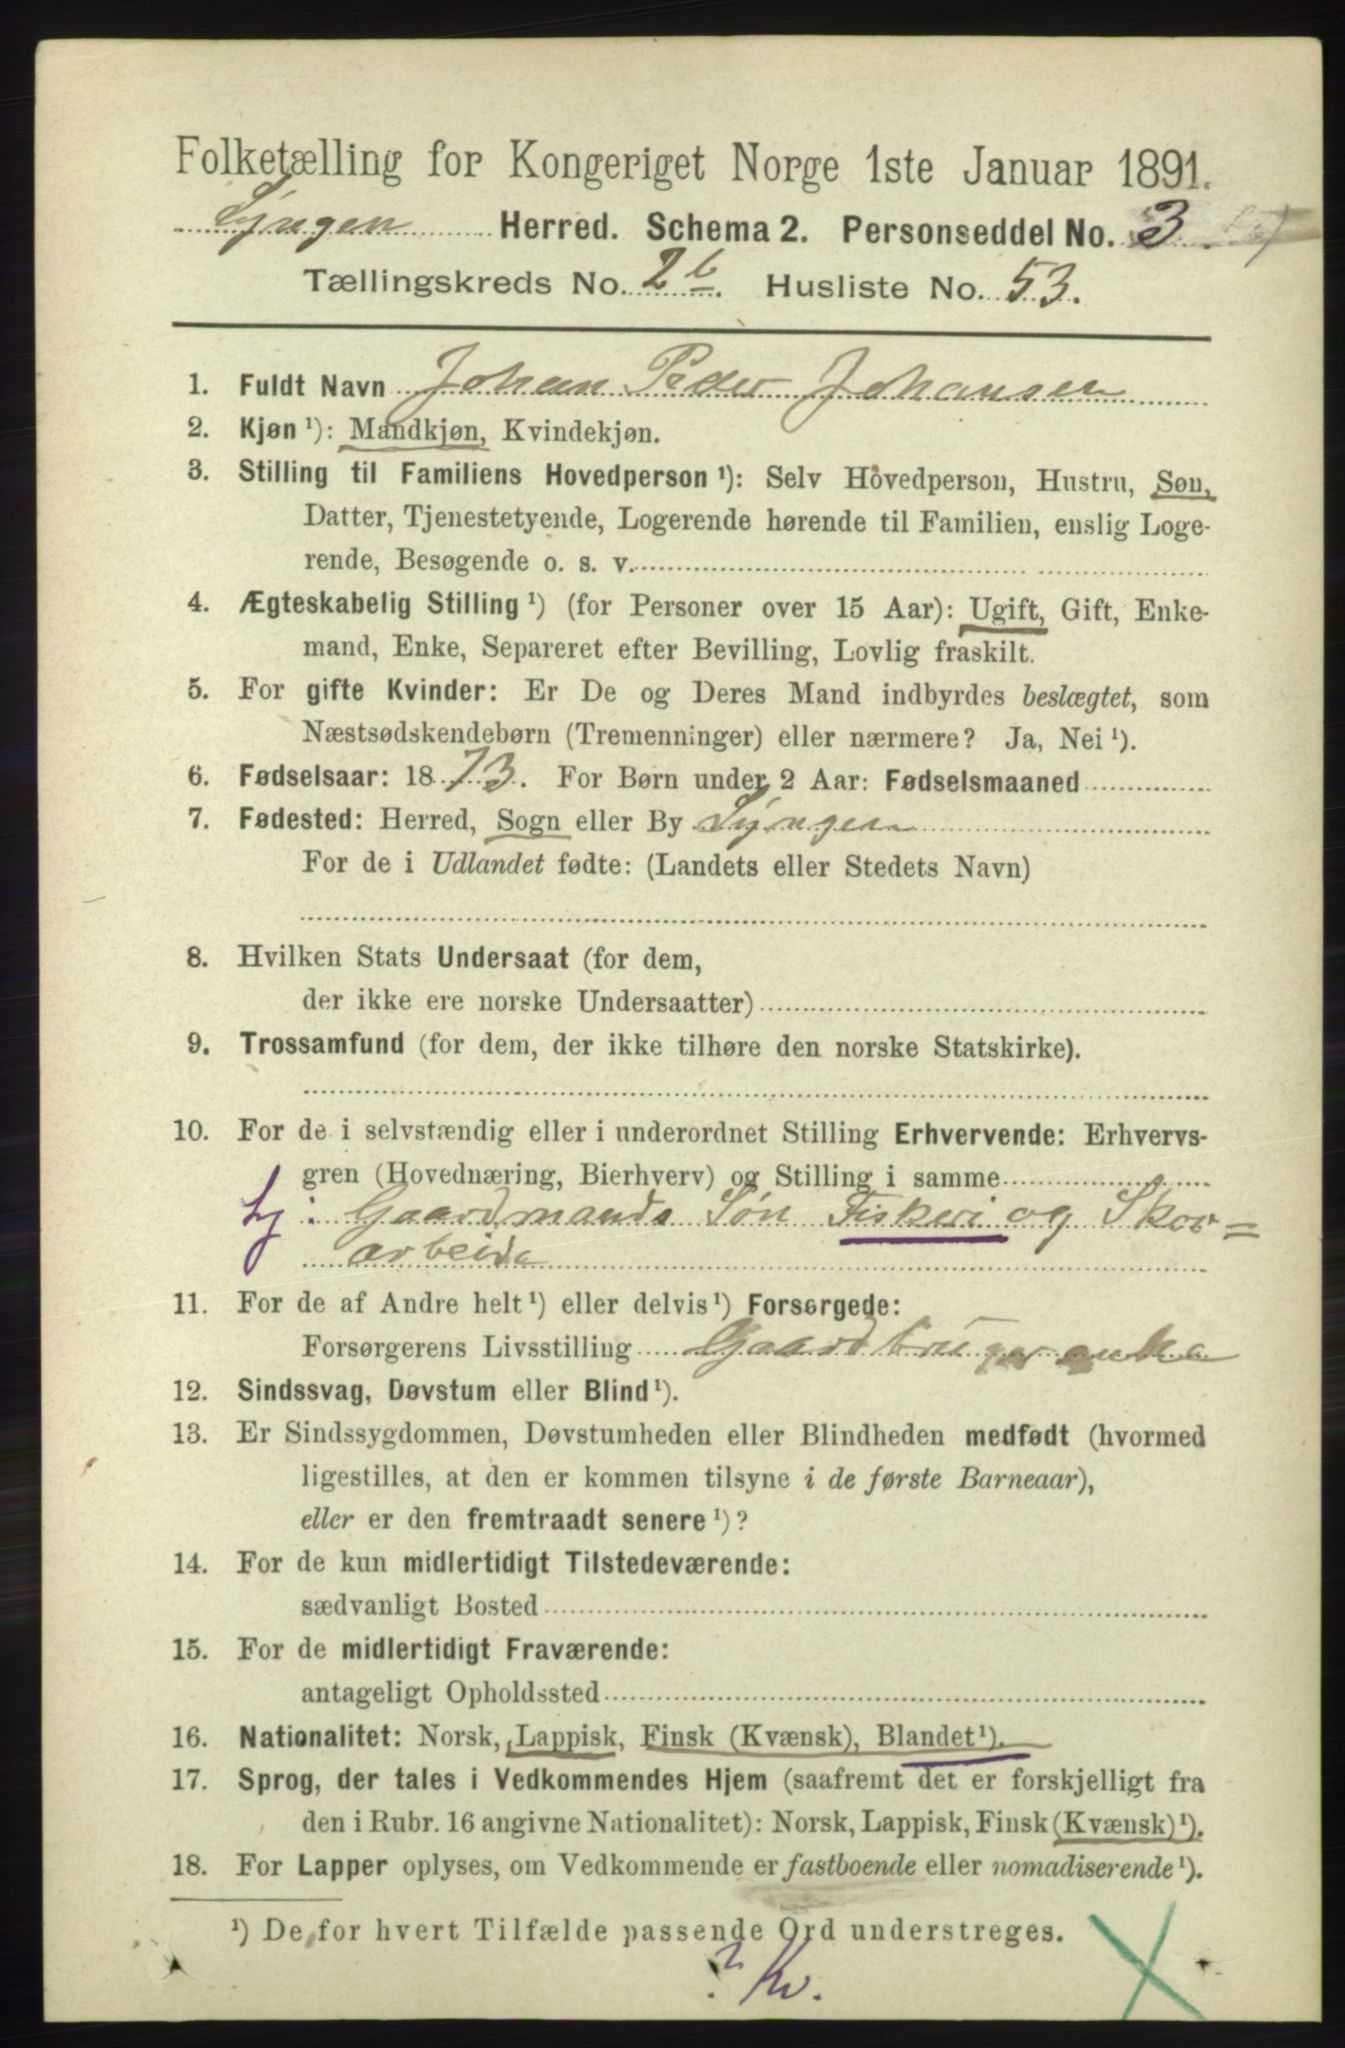 Folketælling for Kongeriget Norge 1ste Januar 1891.
Lyngen Herred. Schema 2. Personseddel No. 3.
Tællingskreds No. 2b. Husliste No. 53.
1. Fuldt Navn Johan Peder Johansen
2. Kjøn ¹): Mandkjøn, Kvindekjøn.
3. Stilling til Familiens Hovedperson ¹): Selv Hovedperson, Hustru, Søn,
Datter, Tjenestetyende, Logerende hørende til Familien, enslig Loge-
rende, Besøgende o. s. v.
4. Ægteskabelig Stilling ¹) (for Personer over 15 Aar): Ugift, Gift, Enke-
mand, Enke, Separeret efter Bevilling, Lovlig fraskilt.
5. For gifte Kvinder: Er De og Deres Mand indbyrdes beslægtet, som
Næstsødskendebørn (Tremenninger) eller nærmere? Ja, Nei ¹).
6. Fødselsaar: 1873. For Børn under 2 Aar: Fødselsmaaned
7. Fødested: Herred, Sogn eller By Lyngen
For de i Udlandet fødte: (Landets eller Stedets Navn)
8. Hvilken Stats Undersaat (for dem,
der ikke ere norske Undersaatter)
9. Trossamfund (for dem, der ikke tilhøre den norske Statskirke).
10. For de i selvstændig eller i underordnet Stilling Erhvervende: Erhvervs-
gren (Hovednæring, Bierhverv) og Stilling i samme
hj: Gaardmands Søn Fiskeri og Skov=
arbeide
11. For de af Andre helt ¹) eller delvis ¹) Forsørgede:
Forsørgerens Livsstilling Gaardbruger enke
12. Sindssvag, Døvstum eller Blind ¹).
13. Er Sindssygdommen, Døvstumheden eller Blindheden medfødt (hvormed
ligestilles, at den er kommen tilsyne i de første Barneaar),
eller er den fremtraadt senere ¹)?
14. For de kun midlertidigt Tilstedeværende:
sædvanligt Bosted
15. For de midlertidigt Fraværende:
antageligt Opholdssted
16. Nationalitet: Norsk, Lappisk, Finsk (Kvænsk), Blandet ¹).
17. Sprog, der tales i Vedkommendes Hjem (saafremt det er forskjelligt fra
den i Rubr. 16 angivne Nationalitet): Norsk, Lappisk, Finsk (Kvænsk) ¹).
18. For Lapper oplyses, om Vedkommende er fastboende eller nomadiserende ¹).
¹) De for hvert Tilfælde passende Ord understreges.
? Kv.